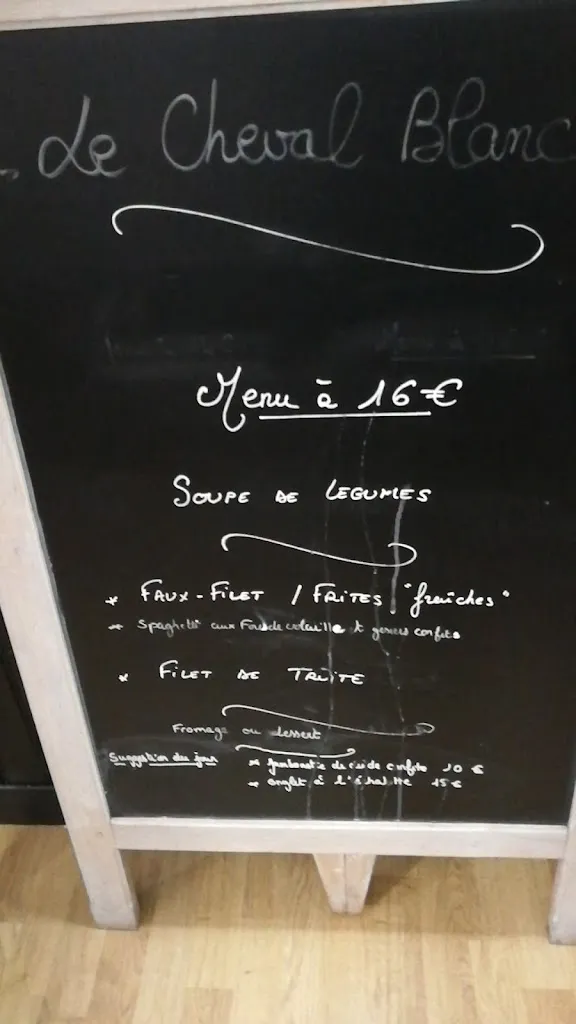 Le Cheval Blanc
Menu à 16€
SOUPE DE LEGUMES
* FAUX-FILET / FRITES "fraîches"
* Spaghetti aux Foies de volaille & gesiers confits
* FILET DE TRUITE
Fromage ou dessert
Suggestion du jour * de confite 10 €
* onglet à l'échalotte 15€